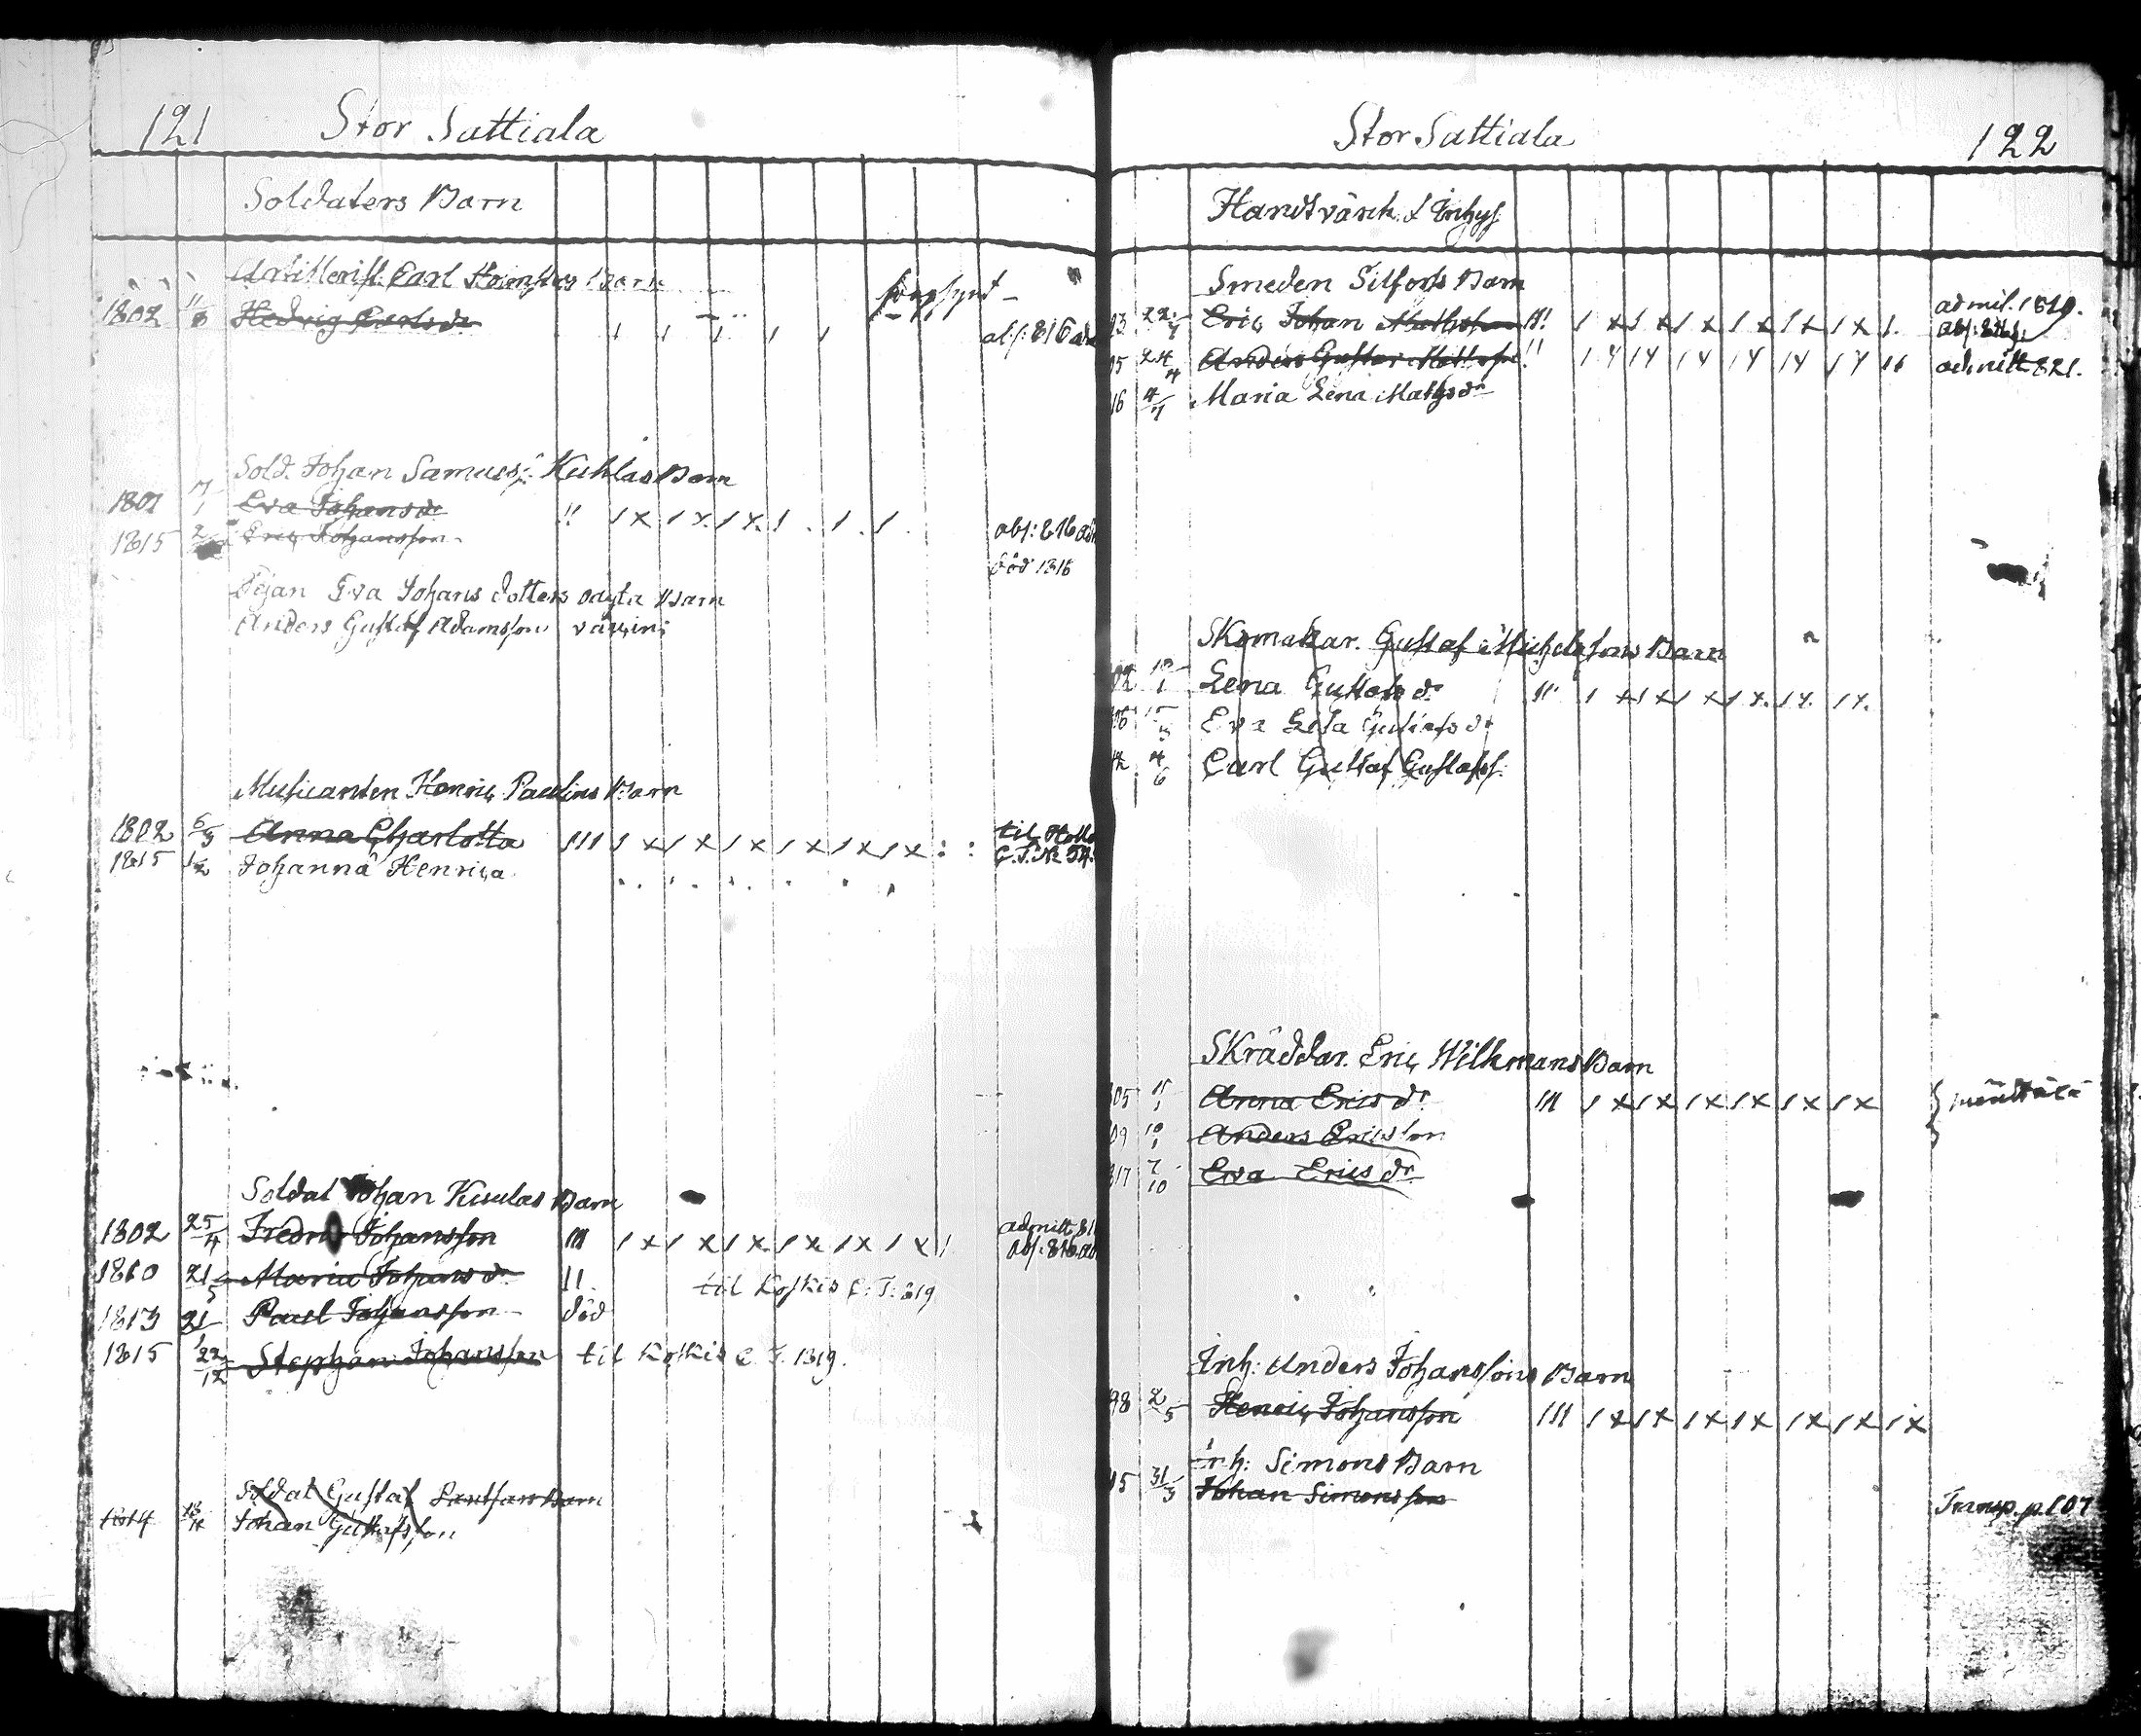 121 Stor Sattiala
Soldaters Barn
Artillerist. Carl Barn
1802 11/8 Hedvig Carlsdr absf: 816
Sold. Johan Samuelss: Kuhlas Barn
1801 Eva Johansdr !! 1 x 1 x 1 x 1 . 1 . 1 . abs: 816
1815 Eric Johansson död 1816
Pigan Eva Johans dotters oägta Barn
Anders Gustaf Adamsson
Musicanten Henric Paulins Barn
1802 6/9 Anna Charlotta 111 1 x 1 x 1 x 1 x 1 x 1 x : : til
1815 Johanna Henrica C.T. N 54.
Soldat Johan Kuulas Barn
1802 25/4 Fredric Johansson 111 1 x 1 x 1 x 1 x 1 x 1 x 1 admitt
1810 21/5 Maria Johansdr 11. til Koskis C. T. 819 abs: 816
1813 21 Paul Johansson död
1815 22/12 Stephan Johansson til Koskis C. T. 1819.
Soldat Gustaf Barn
1814 Johan Gustafsson
Stor Sattiala 122
Handtvärck. & Inhys
Smeden Silforts Barn
03 22/4 Eric Johan Mathsson !!! 1 x 1 x 1 x 1 x 1 x 1 x 1. admit. 1819.
05 24/4 Anders Gustav !! 1 x 1 x 1 x 1 x 1 x 1 x 11 admitt 821.
16 4/7 Maria Lena Mathsdr
Skomakar. Gustaf Michelsons Barn
02 10/1 Lena Gustafsdr 111 1 x 1 x 1 x 1 x. 1 x. 1 x.
06 15/3 Eva Lisa Gustafsdr
4/6 Carl Gustaf Gustafss.
Skräddar. Eric Wilkmans Barn
05 11/1 Anna Ericsdr 111 1 x 1 x 1 x 1 x 1 x 1 x
09 10/1 Anders Ericsson
817 7/10 Eva Ericsdr
Inh: Anders Johanssons Barn
98 2/5 Henric Johansson 111 1 x 1 x 1 x 1 x 1 x 1 x 1 x
Inh: Simons Barn
15 31/3 Johan Simonsson Transp. p. 107